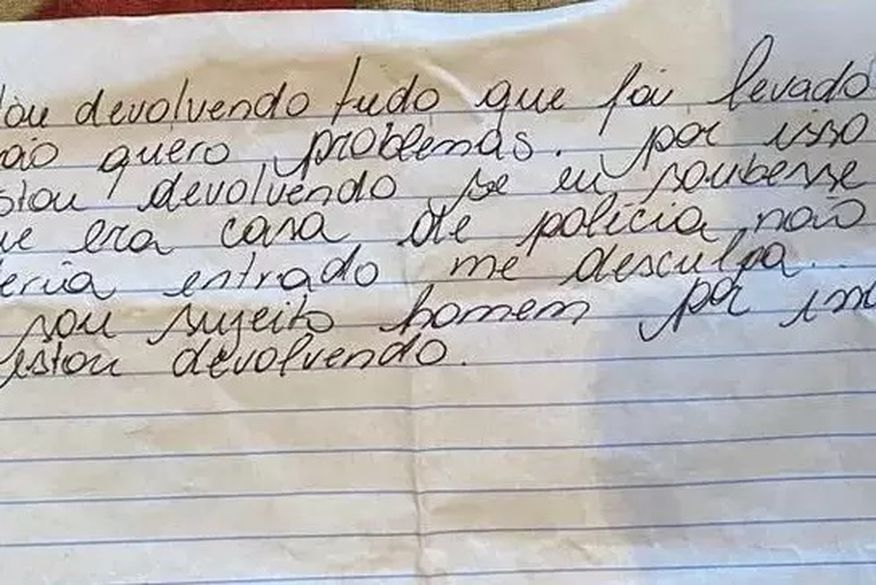 tou devolvendo tudo que foi levado
não quero problemas. por isso
estou devolvendo se eu soubesse
que era casa de policia não
teria entrado me desculpa.
sou sujeito homem por isso
estou devolvendo.